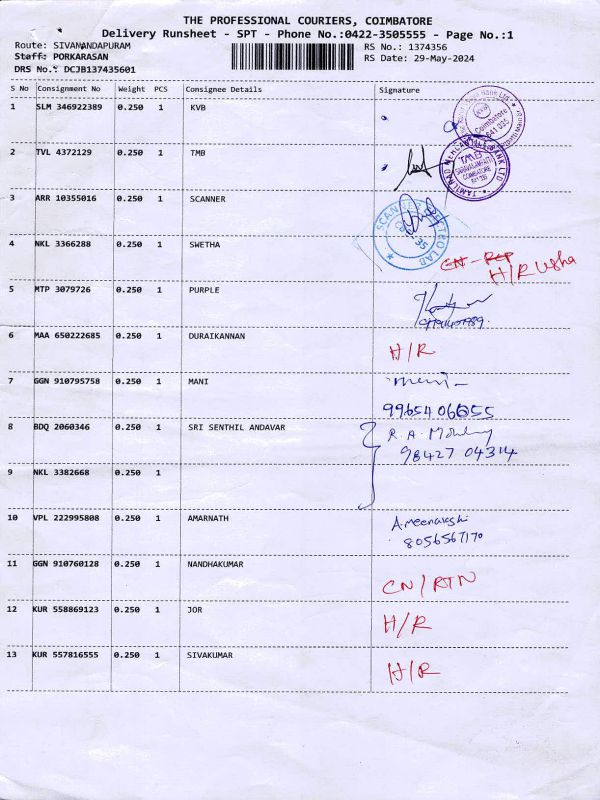 THE PROFESSIONAL COURIERS, COIMBATORE
Delivery Runsheet - SPT - Phone No.:0422-3505555 - Page No.:1
Route: SIVANANDAPURAM RS No.: 1374356
Staff: PORKARASAN RS Date: 29-May-2024
DRS No.: DCJB137435601
S No Consignment No Weight PCS Consignee Details Signature
1 SLM 346922389 0.250 1 KVB
KVB Coimbatore 641 035
2 TVL 4372129 0.250 1 TMB
TAMILNAD MERCANTILE BANK LTD TMB SARAVANAMPATTI COIMBATORE
3 ARR 10355016 0.250 1 SCANNER
4 NKL 3366288 0.250 1 SWETHA
H/R Usha
5 MTP 3079726 0.250 1 PURPLE
6 MAA 650222685 0.250 1 DURAIKANNAN
H/R
7 GGN 910795758 0.250 1 MANI
99654 06655
8 BDQ 2060346 0.250 1 SRI SENTHIL ANDAVAR R.A.
98427 04314
9 NKL 3382668 0.250 1
10 VPL 222995808 0.250 1 AMARNATH A.meenakshi
8056567170
11 GGN 910760128 0.250 1 NANDHAKUMAR
CN/RTN
12 KUR 558869123 0.250 1 JOR
H/R
13 KUR 557816555 0.250 1 SIVAKUMAR
H/R